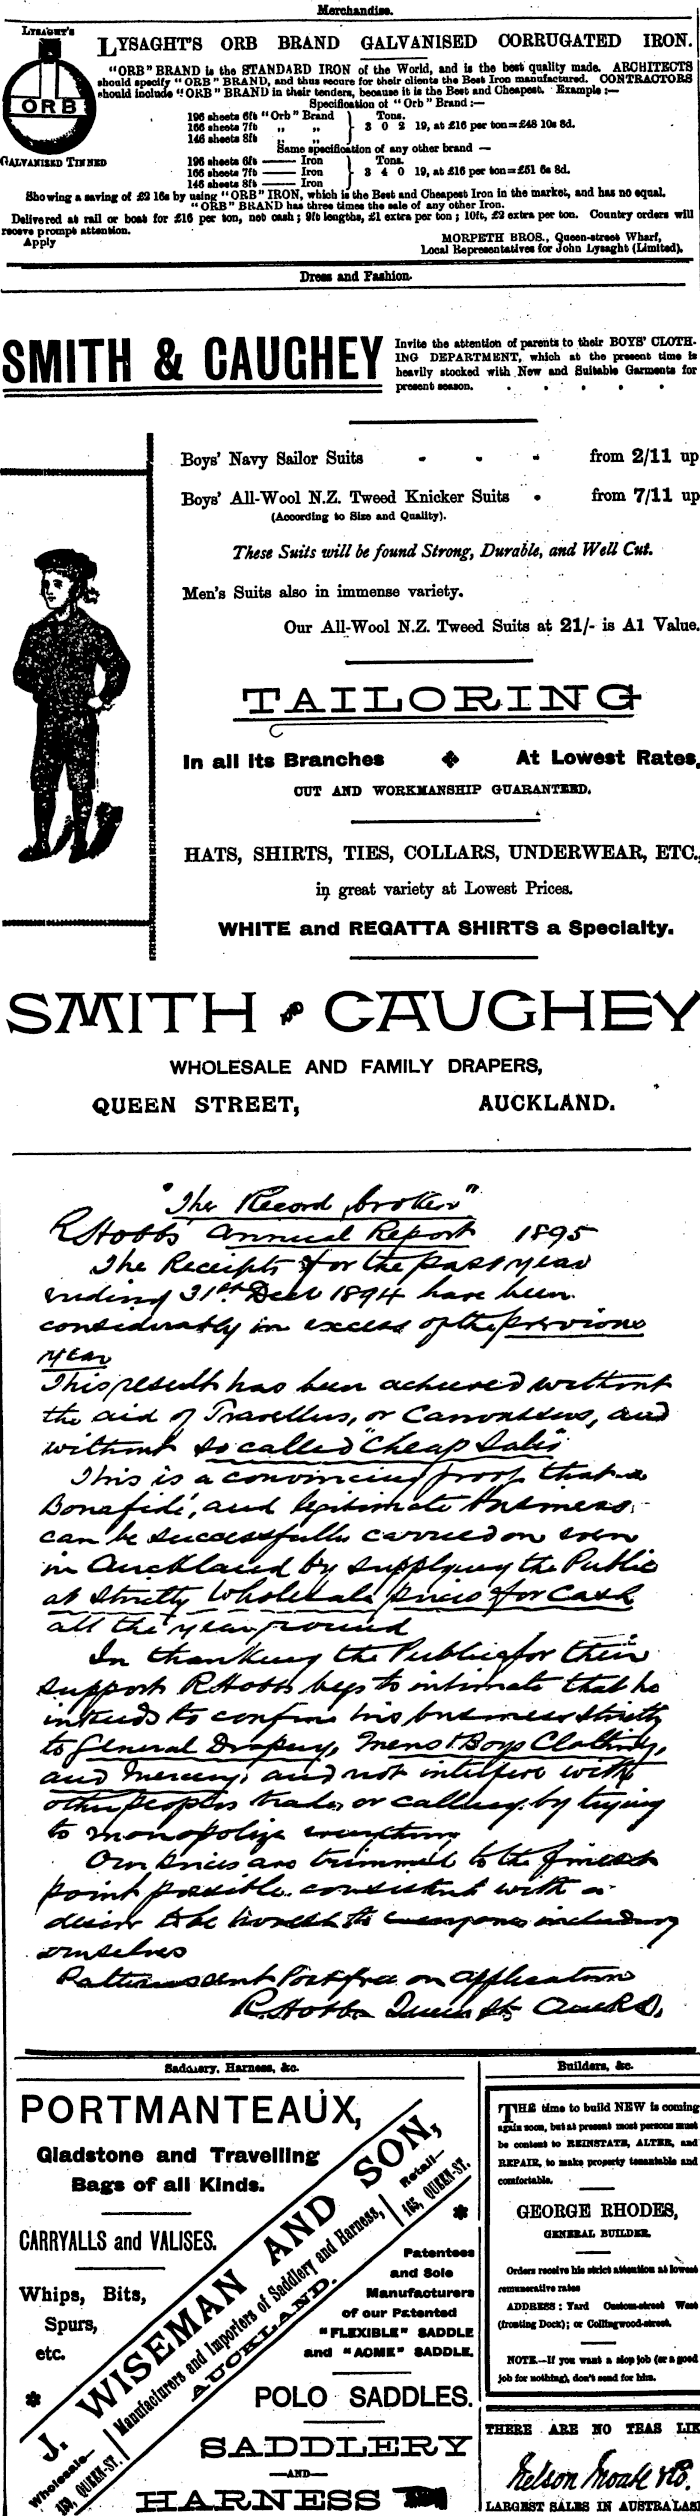 Merchandise.
LYSAGHT'S
ORB
GALVANISED TINNED
LYSAGHT'S ORB BRAND GALVANISED CORRUGATED IRON.
"ORB" BRAND is the STANDARD IRON of the World, and is the best quality made. ARCHITECTS
should specify "ORB" BRAND, and thus secure for their clients the Best Iron manufactured. CONTRACTORS
should include "ORB" BRAND in their tenders, because it is the Best and Cheapest. Example :—
Specification of "Orb" Brand :—
196 sheets 6ft "Orb" Brand
166 sheets 7ft " "
146 sheets 8ft " "
Tons.
3 0 2 19, at £16 per ton=£48 10s 8d.
Same specification of any other brand —
196 sheets 6ft —— Iron
166 sheets 7ft —— Iron
146 sheets 8ft —— Iron
Tons.
3 4 0 19, at £16 per ton=£51 6s 8d.
Showing a saving of £2 16s by using "ORB" IRON, which is the Best and Cheapest Iron in the market, and has no equal.
"ORB" BRAND has three times the sale of any other Iron.
Delivered at rail or boat for £16 per ton, net cash ; 9ft lengths, £1 extra per ton ; 10ft, £2 extra per ton. Country orders will
receive prompt attention.
Apply
MORPETH BROS., Queen-street Wharf,
Local Representatives for John Lysaght (Limited).
Dress and Fashion.
SMITH & CAUGHEY
Invite the attention of parents to their BOYS' CLOTH-
ING DEPARTMENT, which at the present time is
heavily stocked with New and Suitable Garments for
present season.
Boys' Navy Sailor Suits - - - from 2/11 up
Boys' All-Wool N.Z. Tweed Knicker Suits - from 7/11 up
(According to Size and Quality).
These Suits will be found Strong, Durable, and Well Cut.
Men's Suits also in immense variety.
Our All-Wool N.Z. Tweed Suits at 21/- is A1 Value.
TAILORING
In all its Branches At Lowest Rates,
CUT AND WORKMANSHIP GUARANTEED.
HATS, SHIRTS, TIES, COLLARS, UNDERWEAR, ETC.,
in great variety at Lowest Prices.
WHITE and REGATTA SHIRTS a Specialty.
SMITH AND CAUGHEY
WHOLESALE AND FAMILY DRAPERS,
QUEEN STREET, AUCKLAND.
"The Record broken"
R Hobbs' Annual Report 1895
The Receipts for the past year
ending 31st Dec 1894 have been
considerably in excess of the previous
year
This result has been achieved without
the aid of Travellers, or Canvassers, and
without so called "Cheap Sales"
This is a convincing proof that a
Bonafide, and legitimate business
can be successfully carried on even
in Auckland by supplying the Public
at strictly Wholesale prices for Cash
all the year round
In thanking the Public for their
support R Hobbs begs to intimate that he
intends to confine his business strictly
to General Drapery, Mens & Boys Clothing,
and Mercery, and not interfere with
other peoples trade, or calling by trying
to monopolize everything
Our prices are trimmed to the finest
point possible consistent with a
desire to be honest to everyone including
ourselves
Patterns sent Post free on application
R. Hobbs Queen St, Auckd,
Saddlery, Harness, &c.
PORTMANTEAUX,
Gladstone and Travelling
Bags of all Kinds.
CARRYALLS and VALISES.
Whips, Bits,
Spurs,
etc.
J. WISEMAN AND SON,
Manufacturers and Importers of Saddlery and Harness,
AUCKLAND.
Retail—
165, QUEEN-ST.
Wholesale—
QUEEN-ST.
Patentees
and Sole
Manufacturers
of our Patented
"FLEXIBLE" SADDLE
and "ACME" SADDLE.
POLO SADDLES.
SADDLERY
—AND—
HARNESS
Builders, &c.
THE time to build NEW is coming
again soon, but at present most persons must
be content to REINSTATE, ALTER, and
REPAIR, to make property tenantable and
comfortable.
GEORGE RHODES,
GENERAL BUILDER.
Orders receive his strict attention at lowest
remunerative rates
ADDRESS : Yard Custom-street West
(fronting Dock); or Collingwood-street.
NOTE.—If you want a slop job (or a good
job for nothing), don't send for him.
THERE ARE NO TEAS LIK
Nelson Moate & Co.
LARGEST SALES IN AUSTRALAS